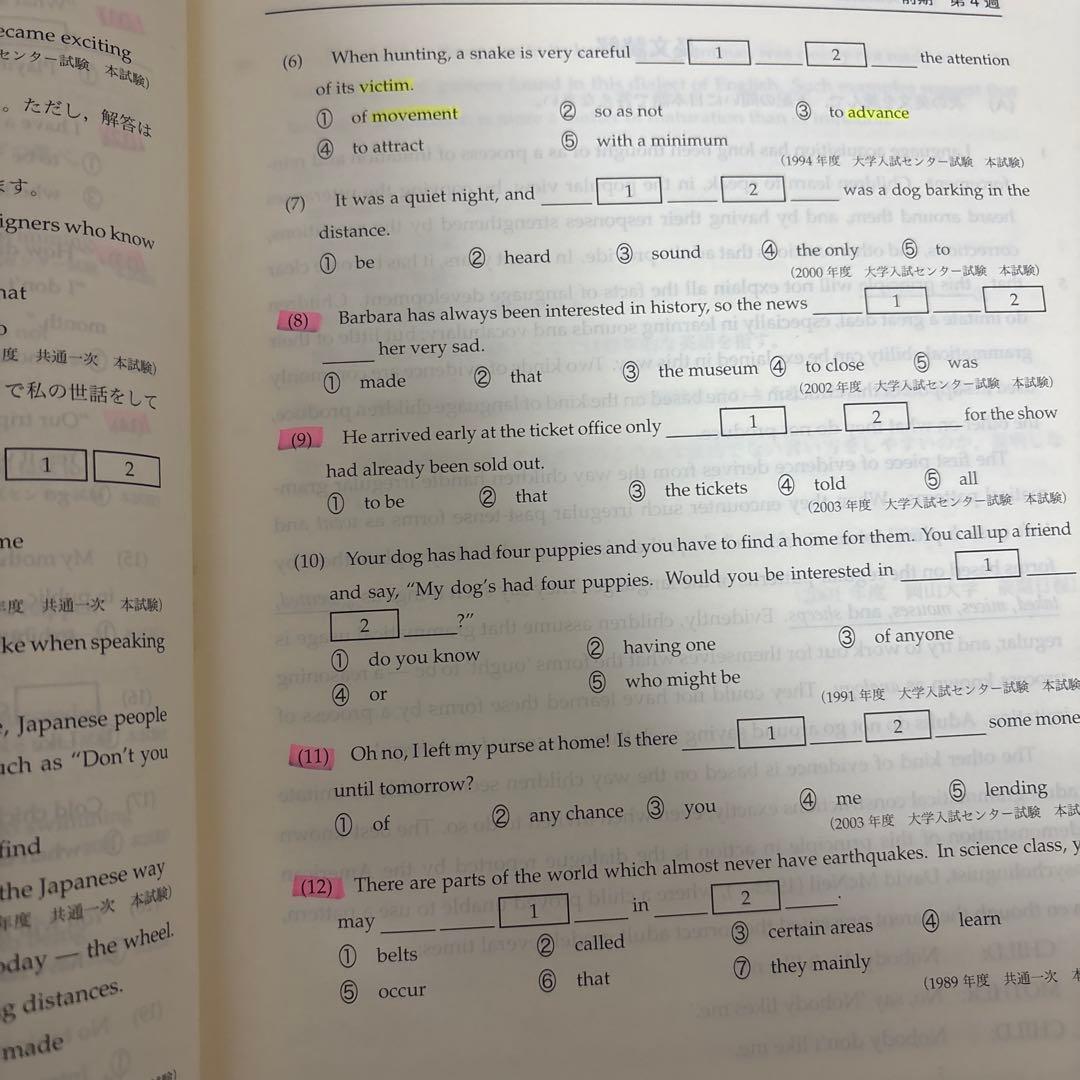 前期 第4週
became exciting
センター試験 本試験)
。ただし，解答は
ます。
igners who know
hat
度 共通一次 本試験)
で私の世話をして
1 2
me
年度 共通一次 本試験)
ke when speaking
e, Japanese people
uch as "Don't you
find
the Japanese way
年度 共通一次 本試験)
oday — the wheel.
g distances.
made
(6) When hunting, a snake is very careful ____ 1 ____ 2 ____ the attention
of its victim.
① of movement ② so as not ③ to advance
④ to attract ⑤ with a minimum
(1994年度 大学入試センター試験 本試験)
(7) It was a quiet night, and ____ 1 ____ 2 ____ was a dog barking in the
distance.
① be ② heard ③ sound ④ the only ⑤ to
(2000年度 大学入試センター試験 本試験)
(8) Barbara has always been interested in history, so the news ____ 1 ____ 2
____ her very sad.
① made ② that ③ the museum ④ to close ⑤ was
(2002年度 大学入試センター試験 本試験)
(9) He arrived early at the ticket office only ____ 1 ____ 2 ____ for the show
had already been sold out.
① to be ② that ③ the tickets ④ told ⑤ all
(2003年度 大学入試センター試験 本試験)
(10) Your dog has had four puppies and you have to find a home for them. You call up a friend
and say, "My dog's had four puppies. Would you be interested in ____ 1 ____
2 ____?"
① do you know ② having one ③ of anyone
④ or ⑤ who might be
(1991年度 大学入試センター試験 本試験
(11) Oh no, I left my purse at home! Is there ____ 1 ____ 2 ____ some mone
until tomorrow?
① of ② any chance ③ you ④ me ⑤ lending
(2003年度 大学入試センター試験 本試
(12) There are parts of the world which almost never have earthquakes. In science class, y
may ____ ____ 1 ____ in ____ 2 ____.
① belts ② called ③ certain areas ④ learn
⑤ occur ⑥ that ⑦ they mainly
(1989年度 共通一次 本